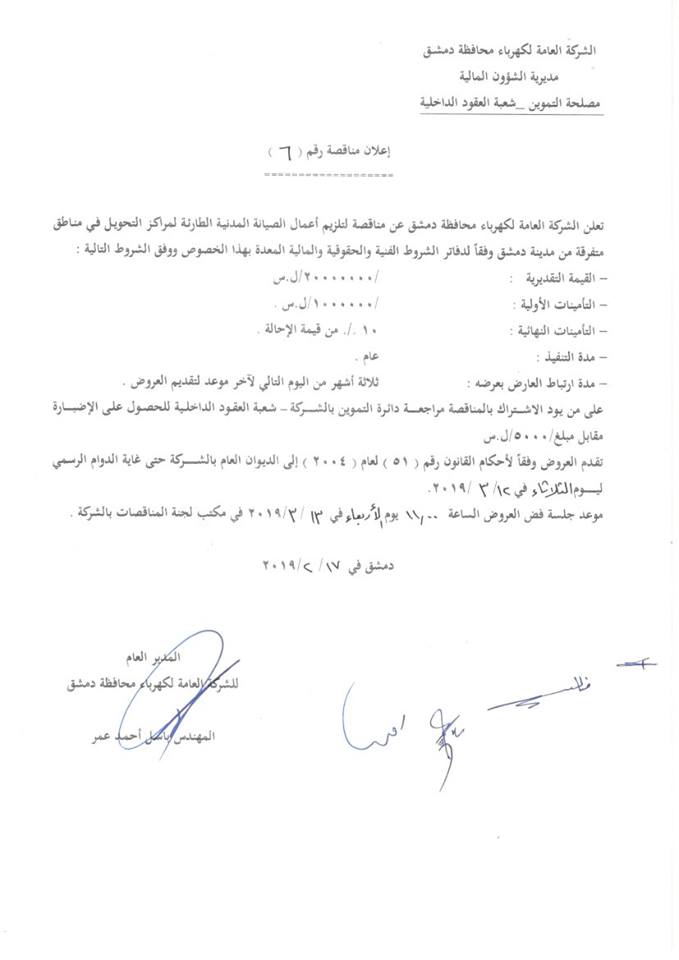 الشركة العامة لكهرباء محافظة دمشق
مديرية الشؤون المالية
مصلحة التموين _ شعبة العقود الداخلية
إعلان مناقصة رقم ( ٦ )
===================
تعلن الشركة العامة لكهرباء محافظة دمشق عن مناقصة لتلزيم أعمال الصيانة المدنية الطارئة لمراكز التحويل في مناطق
متفرقة من مدينة دمشق وفقاً لدفاتر الشروط الفنية والحقوقية والمالية المعدة بهذا الخصوص ووفق الشروط التالية :
– القيمة التقديرية : /٢٠٠٠٠٠٠٠/ل.س
– التأمينات الأولية : /١٠٠٠٠٠٠/ل.س .
– التأمينات النهائية : ١٠ ./. من قيمة الإحالة .
– مدة التنفيذ : عام .
– مدة ارتباط العارض بعرضه : ثلاثة أشهر من اليوم التالي لآخر موعد لتقديم العروض .
على من يود الاشتراك بالمناقصة مراجعة دائرة التموين بالشركة – شعبة العقود الداخلية للحصول على الإضبارة
مقابل مبلغ/٥٠٠٠/ل.س
تقدم العروض وفقاً لأحكام القانون رقم ( ٥١ ) لعام ( ٢٠٠٤ ) إلى الديوان العام بالشركة حتى غاية الدوام الرسمي
ليوم الثلاثاء في ١٢/ ٣ /٢٠١٩.
موعد جلسة فض العروض الساعة ١١,٠٠ يوم الأربعاء في ١٣ /٣/ ٢٠١٩ في مكتب لجنة المناقصات بالشركة .
دمشق في ١٧/ ٢/ ٢٠١٩
المدير العام
للشركة العامة لكهرباء محافظة دمشق
المهندس باسل أحمد عمر